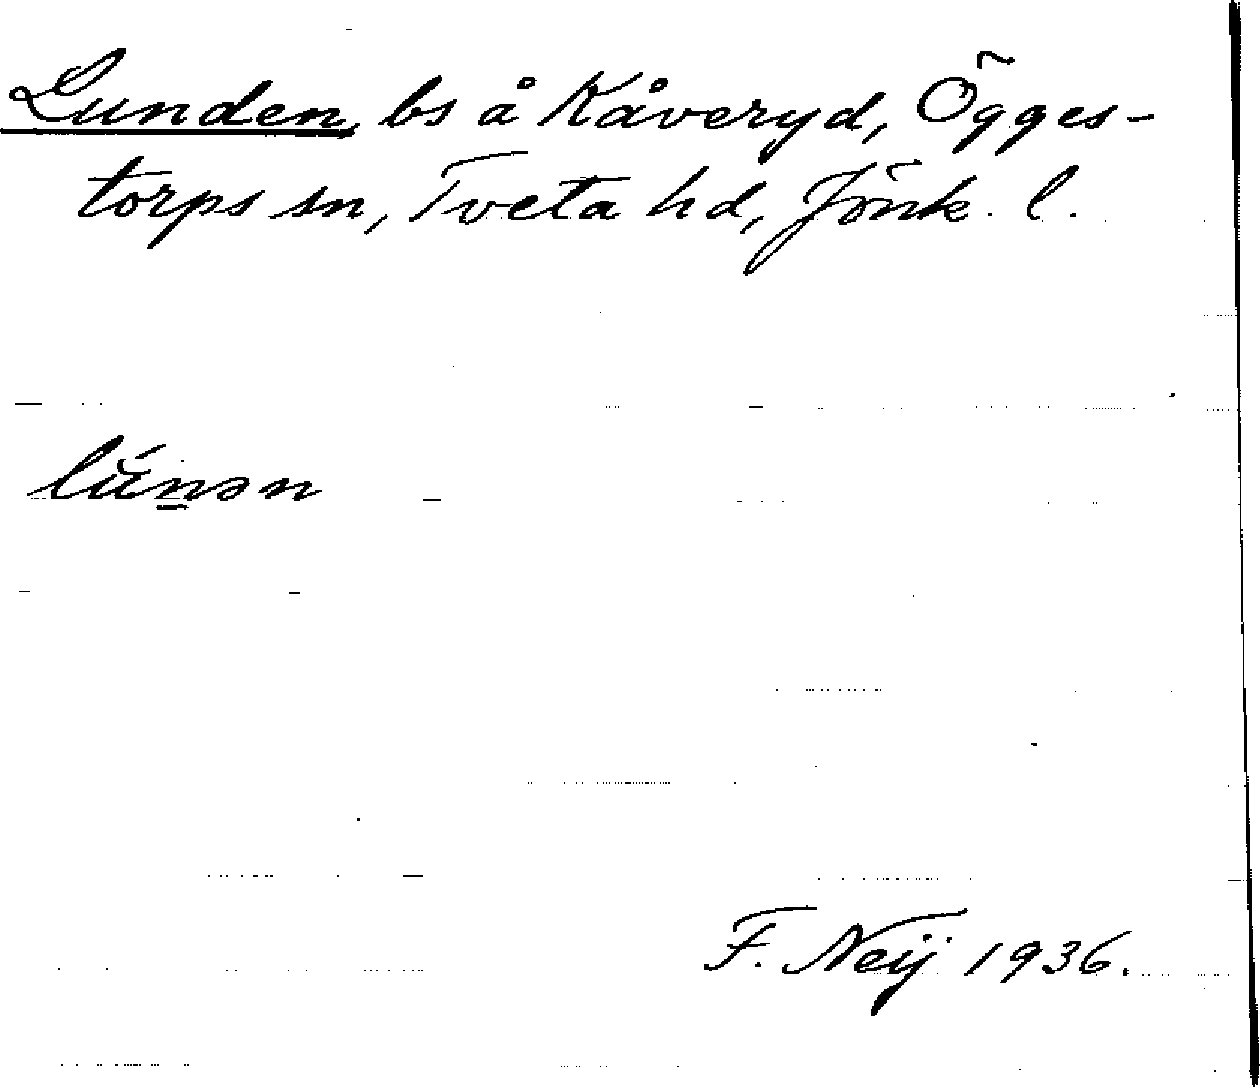 Lunden, bs å Kåveryd, Ögges-
torps sn, Tveta hd, Jönk. l.
lú̆n̲ən
F. Neij 1936.